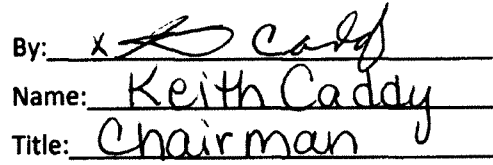 By: x Caddy
Name: Keith Caddy
Title: Chairman